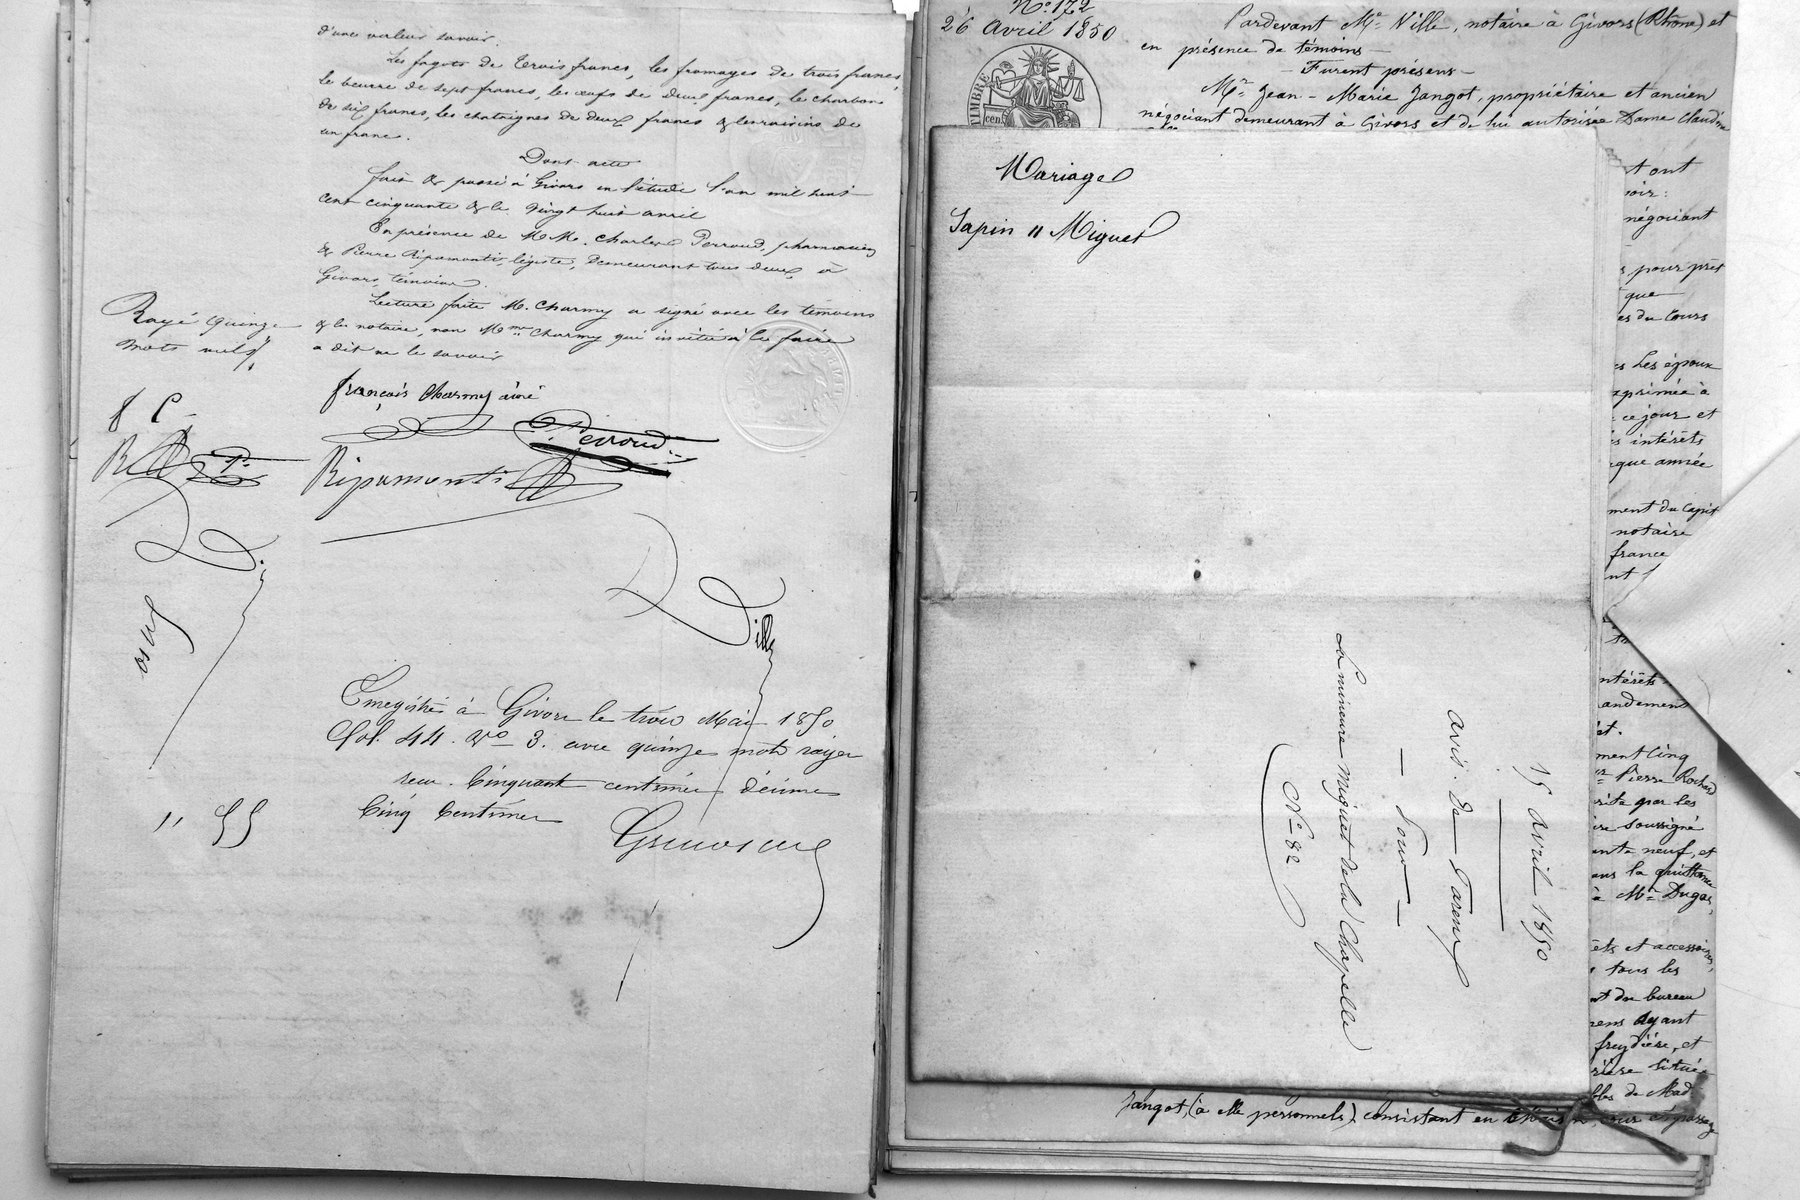 d'une valeur savoir.
Les fagots de trois francs, les fromages de trois francs,
le beurre de sept francs, les œufs de deux francs, le charbon
de six francs, les chataignes de deux francs & les raisins de
un franc.
Dont acte
fait & passé à Givors en l'étude l'an mil huit
cent cinquante & le vingt huit avril
En présence de MM. Charles Perroud, pharmacien
& Pierre Ripamonti, légiste, demeurant tous deux à
Givors, témoins.
Lecture faite M. Charmy a signé avec les témoins
& le notaire, non Mme Charmy qui invitée à le faire
a dit ne le savoir
Rayé quinze
mots nuls
françois Charmy ainé
f C
R P
Perroud
Ripamonti
Ville
Enregistré à Givors le trois Mai 1850
fol. 44. Vo 3. avec quinze mots rayés
reçu. Cinquante centimes décime
Cinq Centimes
" 55
No 172
26 Avril 1850
TIMBRE
Pardevant Me Ville, notaire à Givors (Rhône) et
en présence de témoins —
— Furent présens —
Mr Jean - Marie Jangot, propriétaire et ancien
négociant demeurant à Givors et de lui autorisée Dame Claudine
Mariage
Sapin " Miguet
15 avril 1850
avis de Parens
— Pour —
La mineure Miguet de la Chapelle
No 82
tont
oir:
négociant
pour prêt
que
es du cours
Les époux
exprimée à
ce jour et
intérêts
que année
ment du capit
notaire
france
ntérêts
andement
et.
ment Cinq
Pierre Rochard
rite par les
ire soussigné
ante neuf, et
ans la quittance
à Mr Dugas,
êts et accessoires,
tous les
t du bureau
rens ayant
freydière, et
rière située
bles de Mad
Jangot, (à elle personnels) consistant en